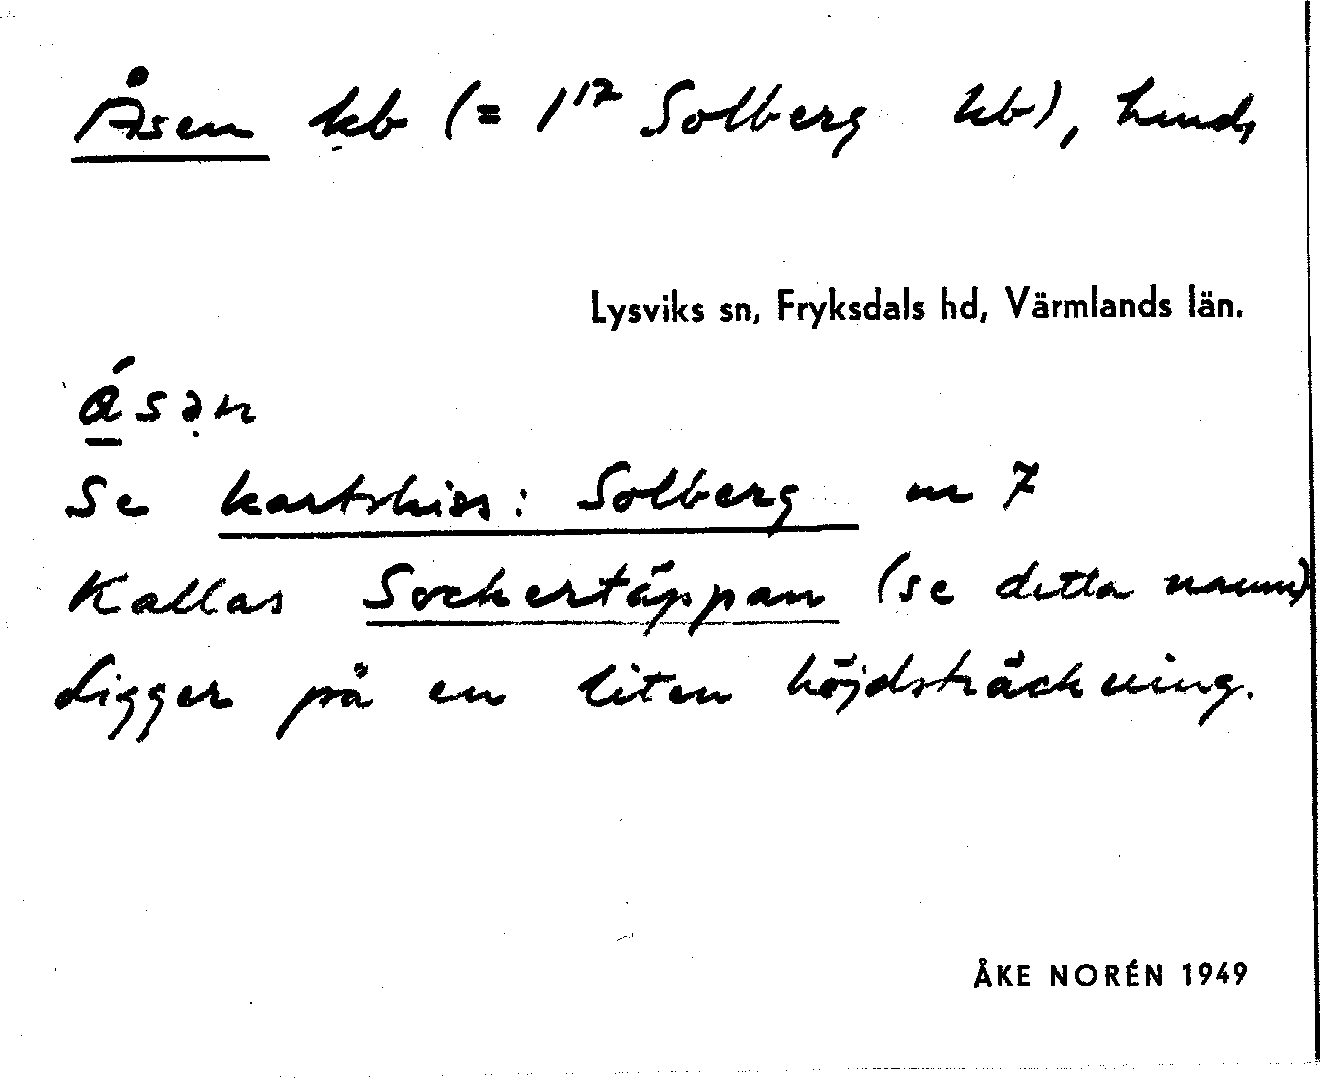 Åsen kb (= 1¹² Solberg kb), hmd,
Lysviks sn, Fryksdals hd, Värmlands län.
åsən
Se kartskiss: Solberg nr 7
Kallas Sockertäppan (se detta namn)
Ligger på en liten höjdsträckning.
ÅKE NORÉN 1949